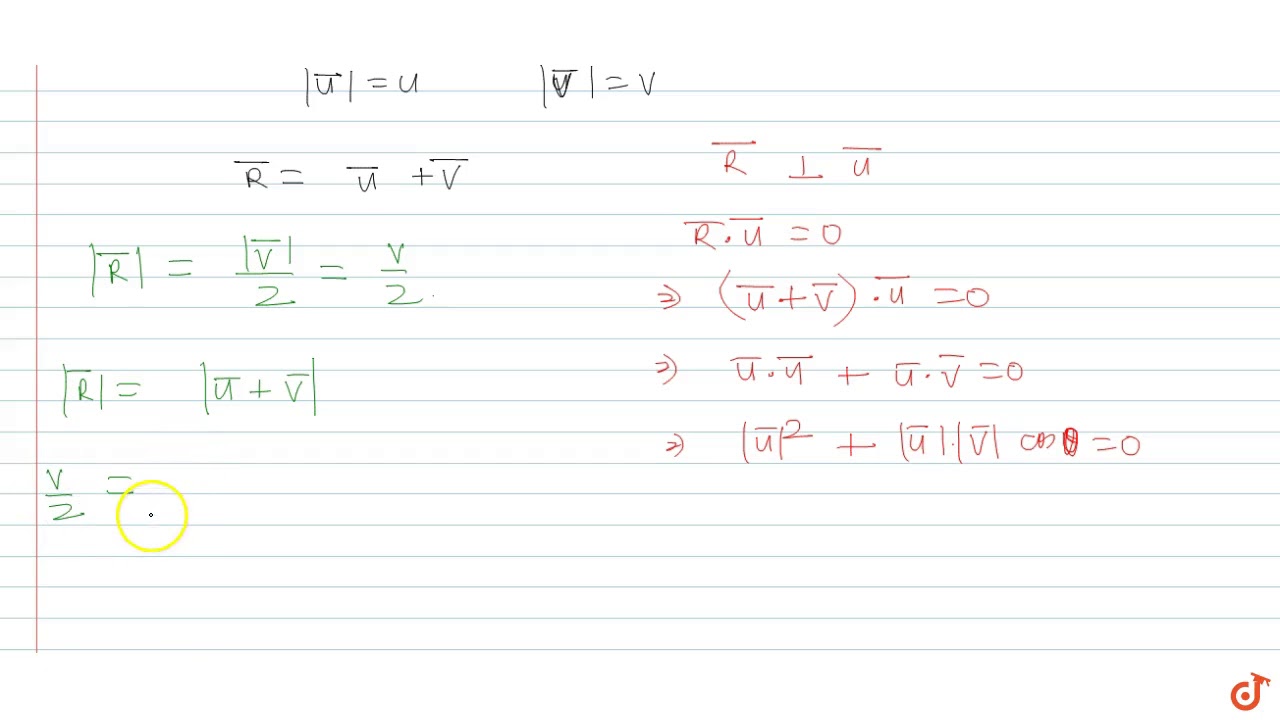 |u̅| = u |v̅| = v
R̅ = u̅ + v̅
|R̅| = |v̅|/2 = v/2.
|R̅| = |u̅ + v̅|
v/2 =
R̅ ⊥ u̅
R̅ · u̅ = 0
⇒ (u̅ + v̅) · u̅ = 0
⇒ u̅ · u̅ + u̅ · v̅ = 0
⇒ |u̅|² + |u̅| · |v̅| cos θ = 0